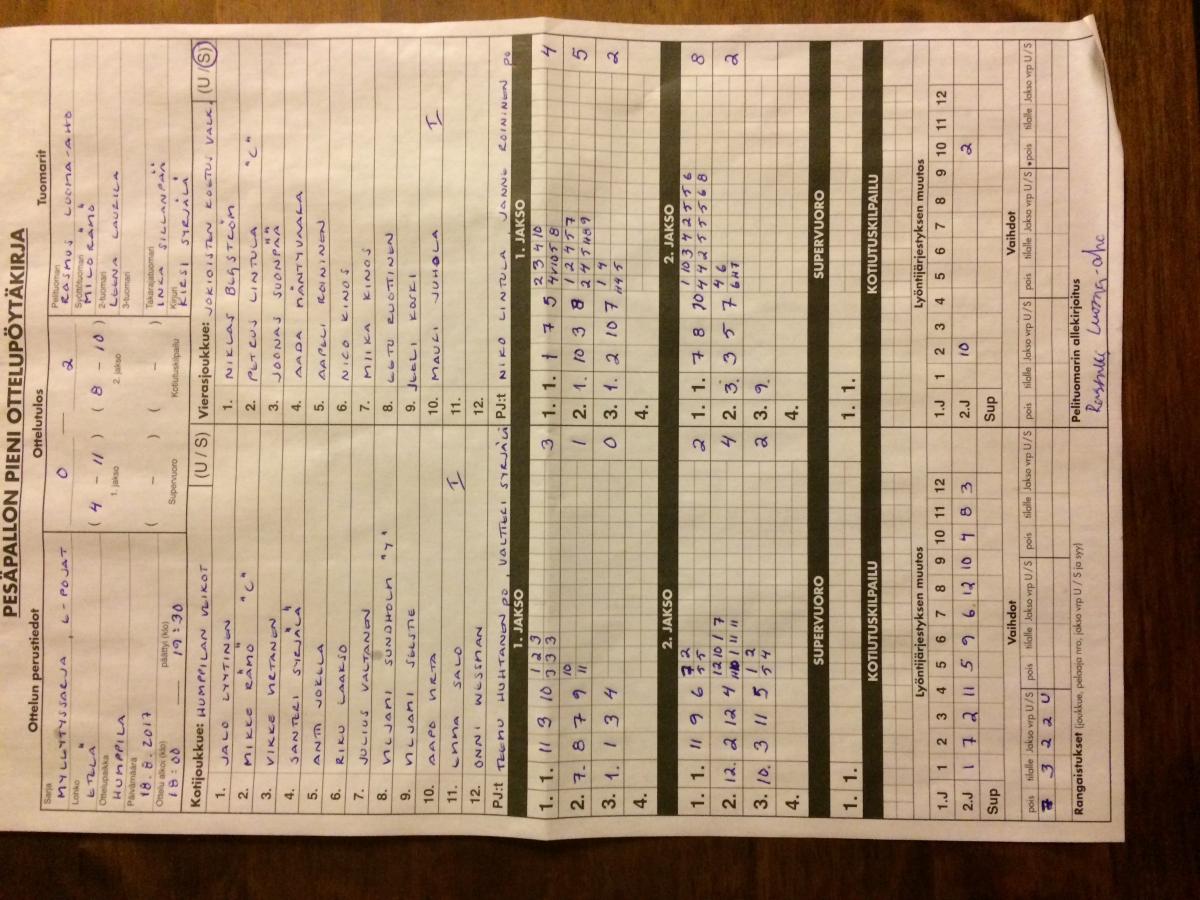 PESÄPALLON PIENI OTTELUPÖYTÄKIRJA
Ottelun perustiedot
Ottelutulos
Tuomarit
Sarja
MYLLYTYSSARJA, E-POJAT
Lohko
ETELÄ
Ottelupaikka
HUMPPILA
Päivämäärä
18.8.2017
Ottelu alkoi (klo)
18:00
päättyi (klo)
19:30
0 2
( 4 - 11 ) ( 8 - 10 )
1. jakso 2. jakso
( - ) ( - )
Supervuoro Kotiutuskilpailu
Pelituomari
RASMUS LUOMA-AHO
Syöttötuomari
MILO RÄMÖ
2-tuomari
LEENA LAURILA
3-tuomari
Takarajatuomari
INKA SILLANPÄÄ
Kirjuri
KIRSI SYRJÄLÄ
Kotijoukkue: HUMPPILAN VEIKOT (U / S)
1. JALO LYYTINEN
2. MIKKE RÄMÖ "C"
3. VIKKE VIRTANEN
4. SANTERI SYRJÄLÄ
5. ANTTI JOKELA
6. RIKU LAAKSO
7. JULIUS VALTANEN
8. VILJAMI SUNDHOLM "Y"
9. VILJAMI SELSTIE
10. AAPO VIRTA
11. EMMA SALO I
12. ONNI WESSMAN
PJ:t TEEMU HUHTANEN PO, VALTTERI SYRJÄLÄ
Vierasjoukkue: JOKIOISTEN KOETUS VALK. (U / S)
1. NIKLAS BERGSTRÖM
2. PETRUS LINTULA "C"
3. JOONAS SUONPÄÄ
4. AADA MÄNTYVAARA
5. AAPELI ROININEN
6. NICO KINOS
7. MIIKA KINOS
8. EETU RUOTTINEN
9. JEELI KOSKI
10. MAURI JUHOLA I
11.
12.
PJ:t NIKO LINTULA JANNE ROININEN PO
1. JAKSO
1. 1. 11 3 10 1 2 3 3
3 3 3
2. 7. 8 7 9 10 1
11
3. 1. 1 3 4 0
4.
1. JAKSO
1. 1. 1 7 5 2 3 4 10 4
2. 1. 10 3 8 1 2 4 5 7 5
3. 1. 2 10 7 1 4 2
4.
2. JAKSO
1. 1. 11 9 6 2
5 5
2. 12. 2 12 4 12 10 1 7 4
3. 10. 3 11 5 1 2 2
5 4
4.
2. JAKSO
1. 1. 7 8 10 1 10 3 4 2 5 5 6 8
4 4 2 5 5 5 6 8
2. 3. 3 5 7 4 6 2
3. 9.
4.
SUPERVUORO
1. 1.
SUPERVUORO
1. 1.
KOTIUTUSKILPAILU
KOTIUTUSKILPAILU
Lyöntijärjestyksen muutos
1 2 3 4 5 6 7 8 9 10 11 12
1.J
2.J 1 7 2 11 5 9 6 12 10 4 8 3
Sup
Lyöntijärjestyksen muutos
1 2 3 4 5 6 7 8 9 10 11 12
1.J
2.J 10 2
Sup
Vaihdot
pois tilalle Jakso vrp U / S pois tilalle Jakso vrp U / S pois tilalle Jakso vrp U / S
7 3 2 2 U
Vaihdot
pois tilalle Jakso vrp U / S pois tilalle Jakso vrp U / S pois tilalle Jakso vrp U / S
Rangaistukset (joukkue, pelaaja nro, jakso vrp U / S ja syy)
Pelituomarin allekirjoitus
Rasmus Luoma-aho